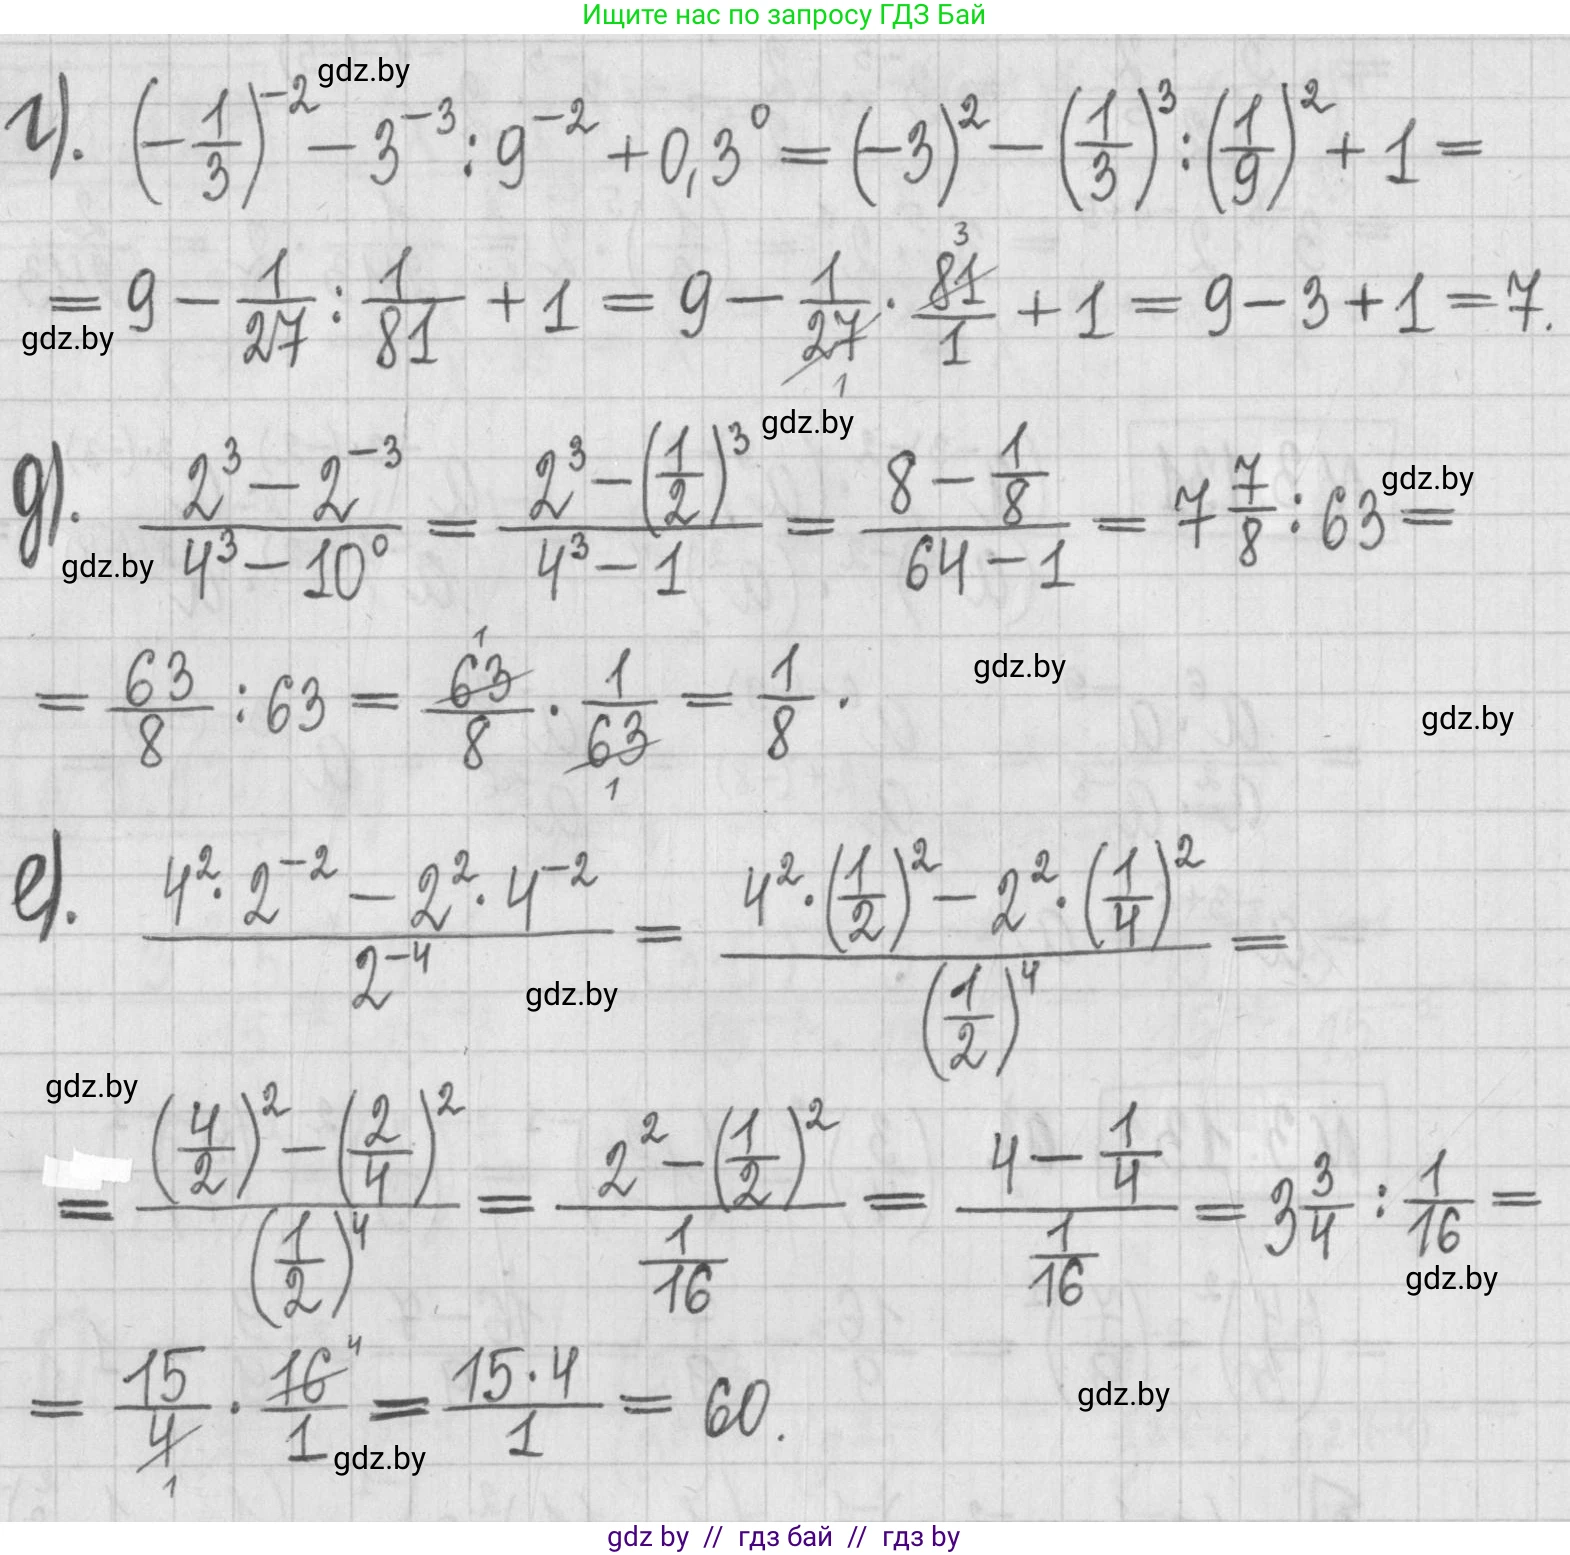 Ищите нас по запросу ГДЗ Бай
gdz.by
г). (-1/3)^-2 - 3^-3 : 9^-2 + 0,3^0 = (-3)^2 - (1/3)^3 : (1/9)^2 + 1 =
= 9 - 1/27 : 1/81 + 1 = 9 - 1/27 · 81/1 + 1 = 9 - 3 + 1 = 7.
3
1
gdz.by
gdz.by
gdz.by
д). (2^3 - 2^-3)/(4^3 - 10^0) = (2^3 - (1/2)^3)/(4^3 - 1) = (8 - 1/8)/(64 - 1) = 7 7/8 : 63 =
gdz.by
= 63/8 : 63 = 63/8 · 1/63 = 1/8.
1
1
gdz.by
gdz.by
е). (4^2 · 2^-2 - 2^2 · 4^-2)/(2^-4) = (4^2 · (1/2)^2 - 2^2 · (1/4)^2)/((1/2)^4) =
gdz.by
gdz.by
= ((4/2)^2 - (2/4)^2)/((1/2)^4) = (2^2 - (1/2)^2)/(1/16) = (4 - 1/4)/(1/16) = 3 3/4 : 1/16 =
gdz.by
= 15/4 · 16/1 = (15 · 4)/1 = 60.
4
1
gdz.by
gdz.by
gdz by // гдз бай // гдз by